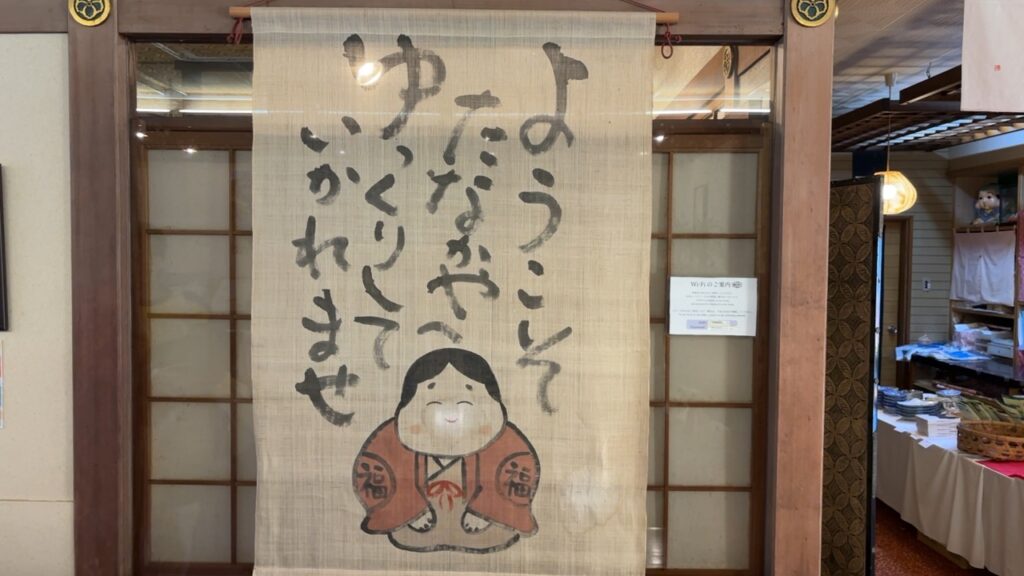 ようこそ
たなかやへ
ゆっくりして
いかれませ
福
福
Wi-Fiのご案内